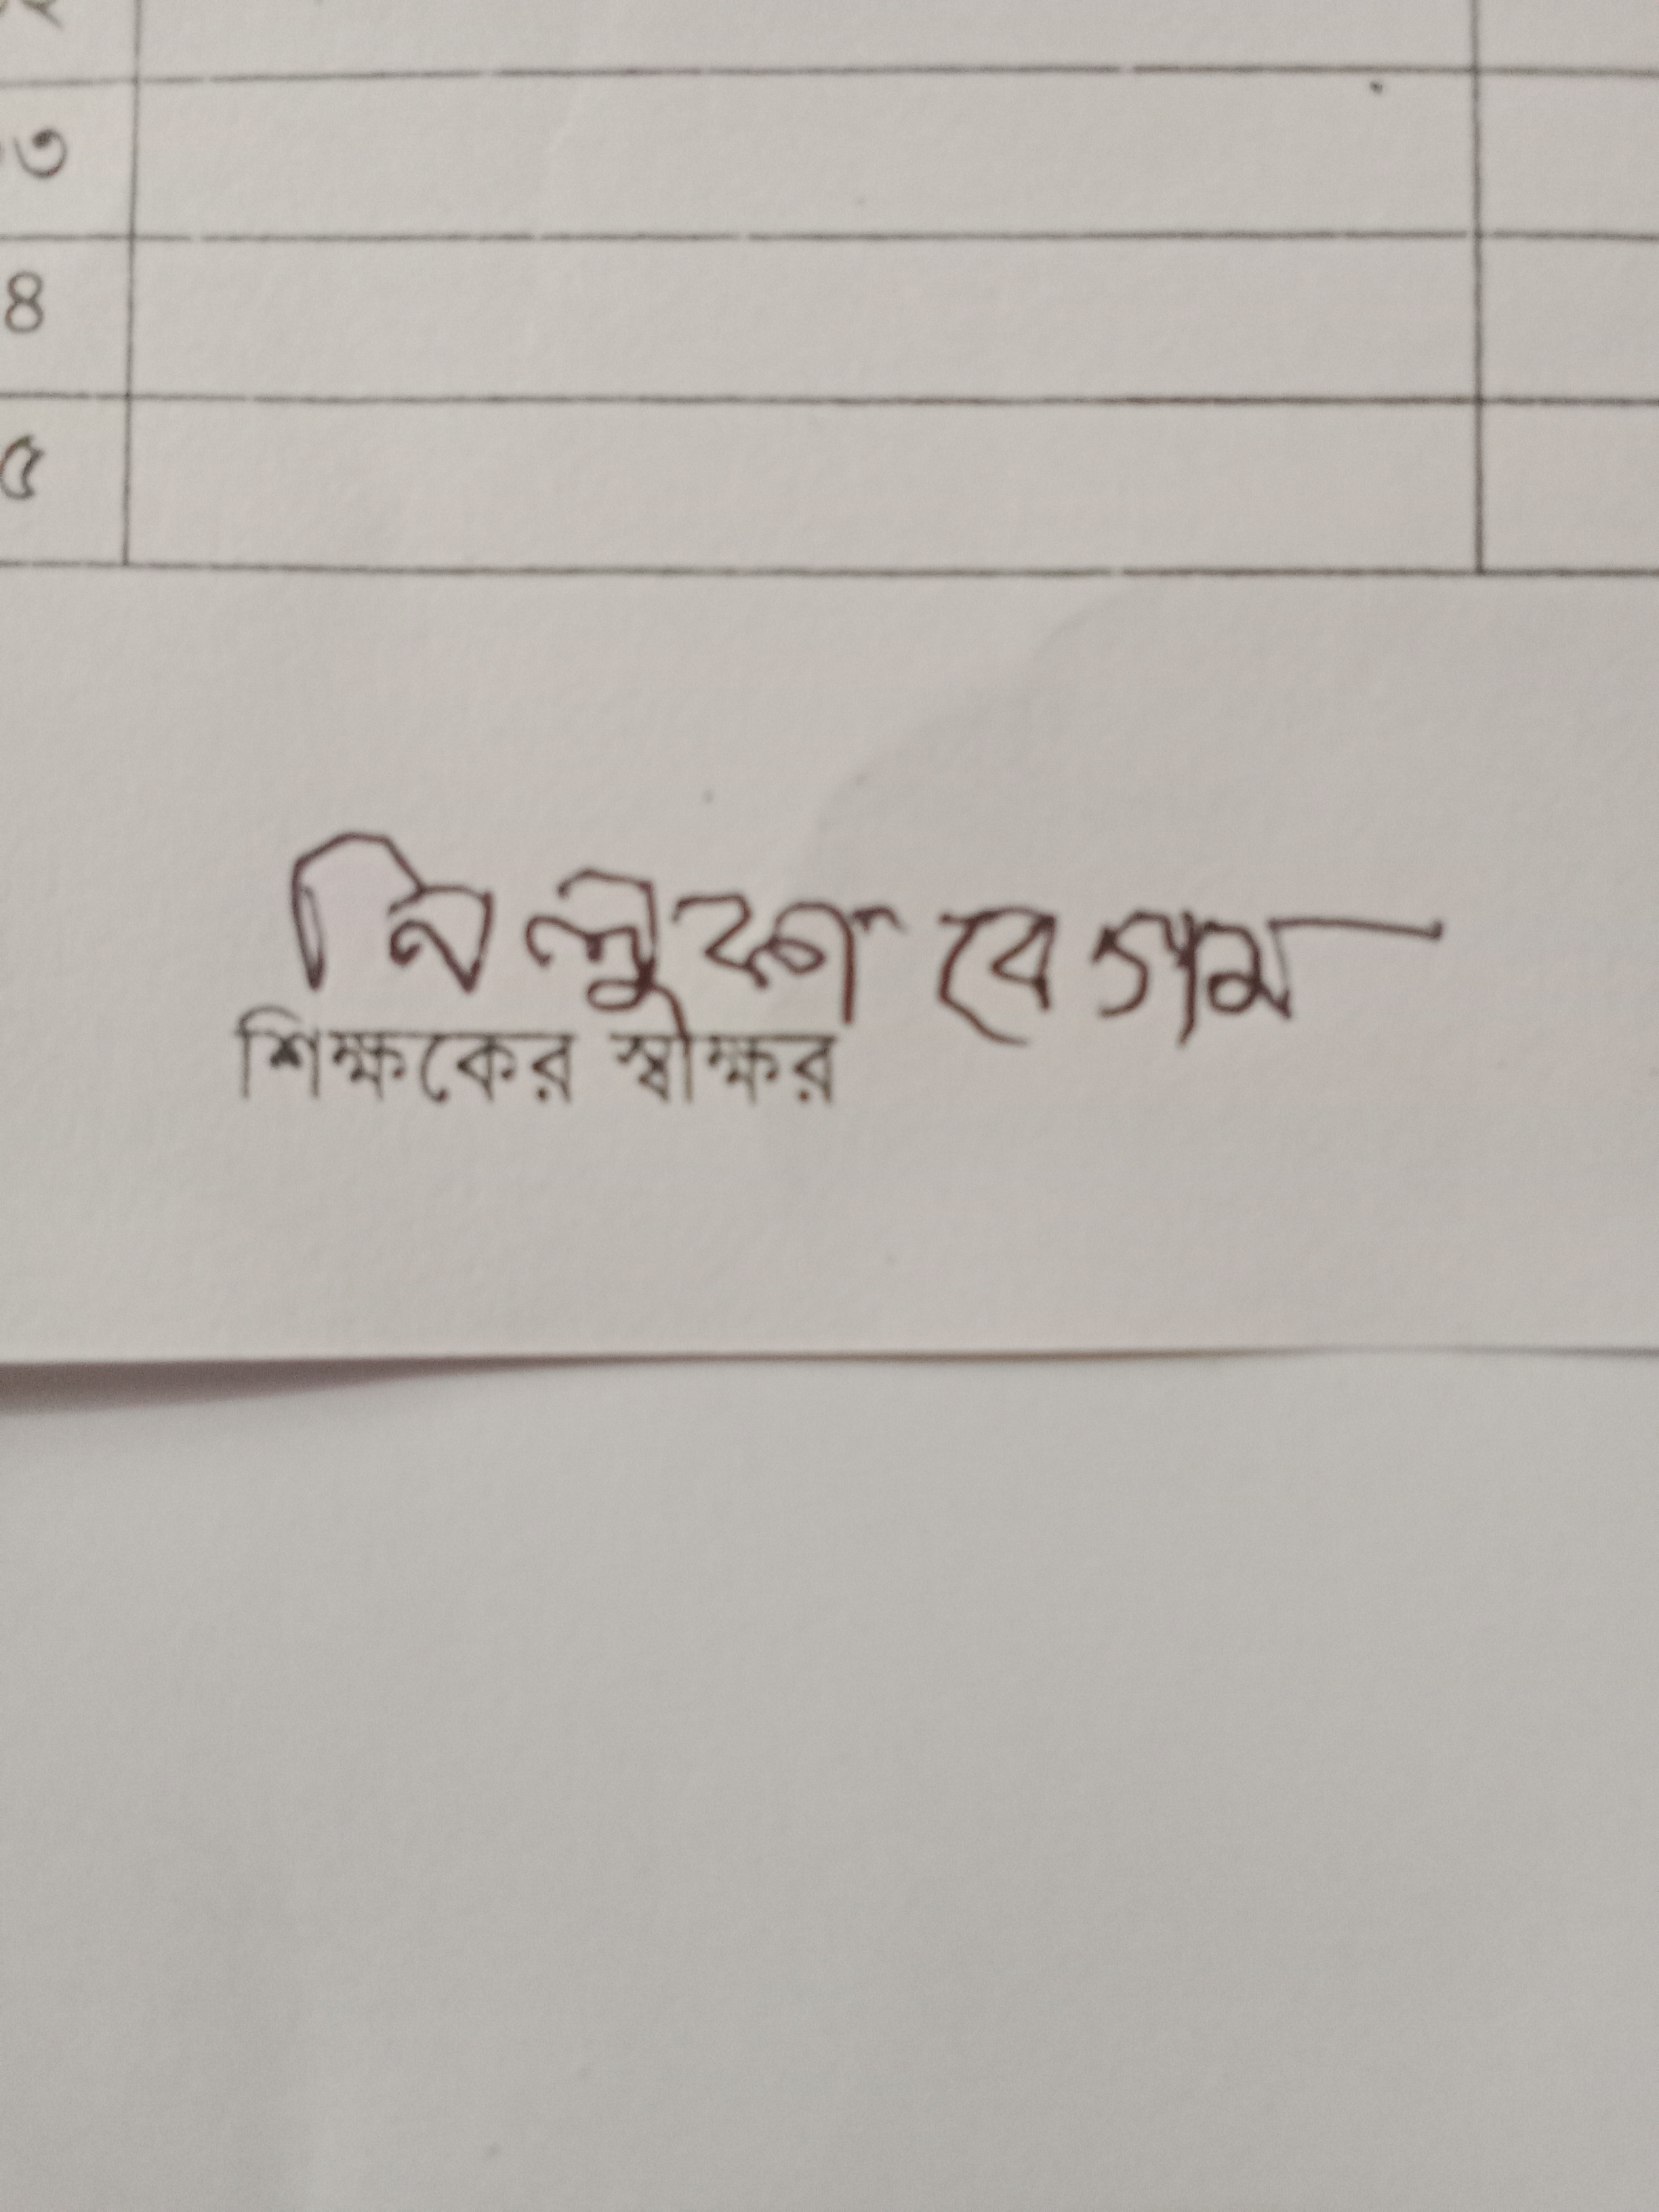 ৩
৪
৫
নিলুফা বেগম
শিক্ষকের স্বাক্ষর